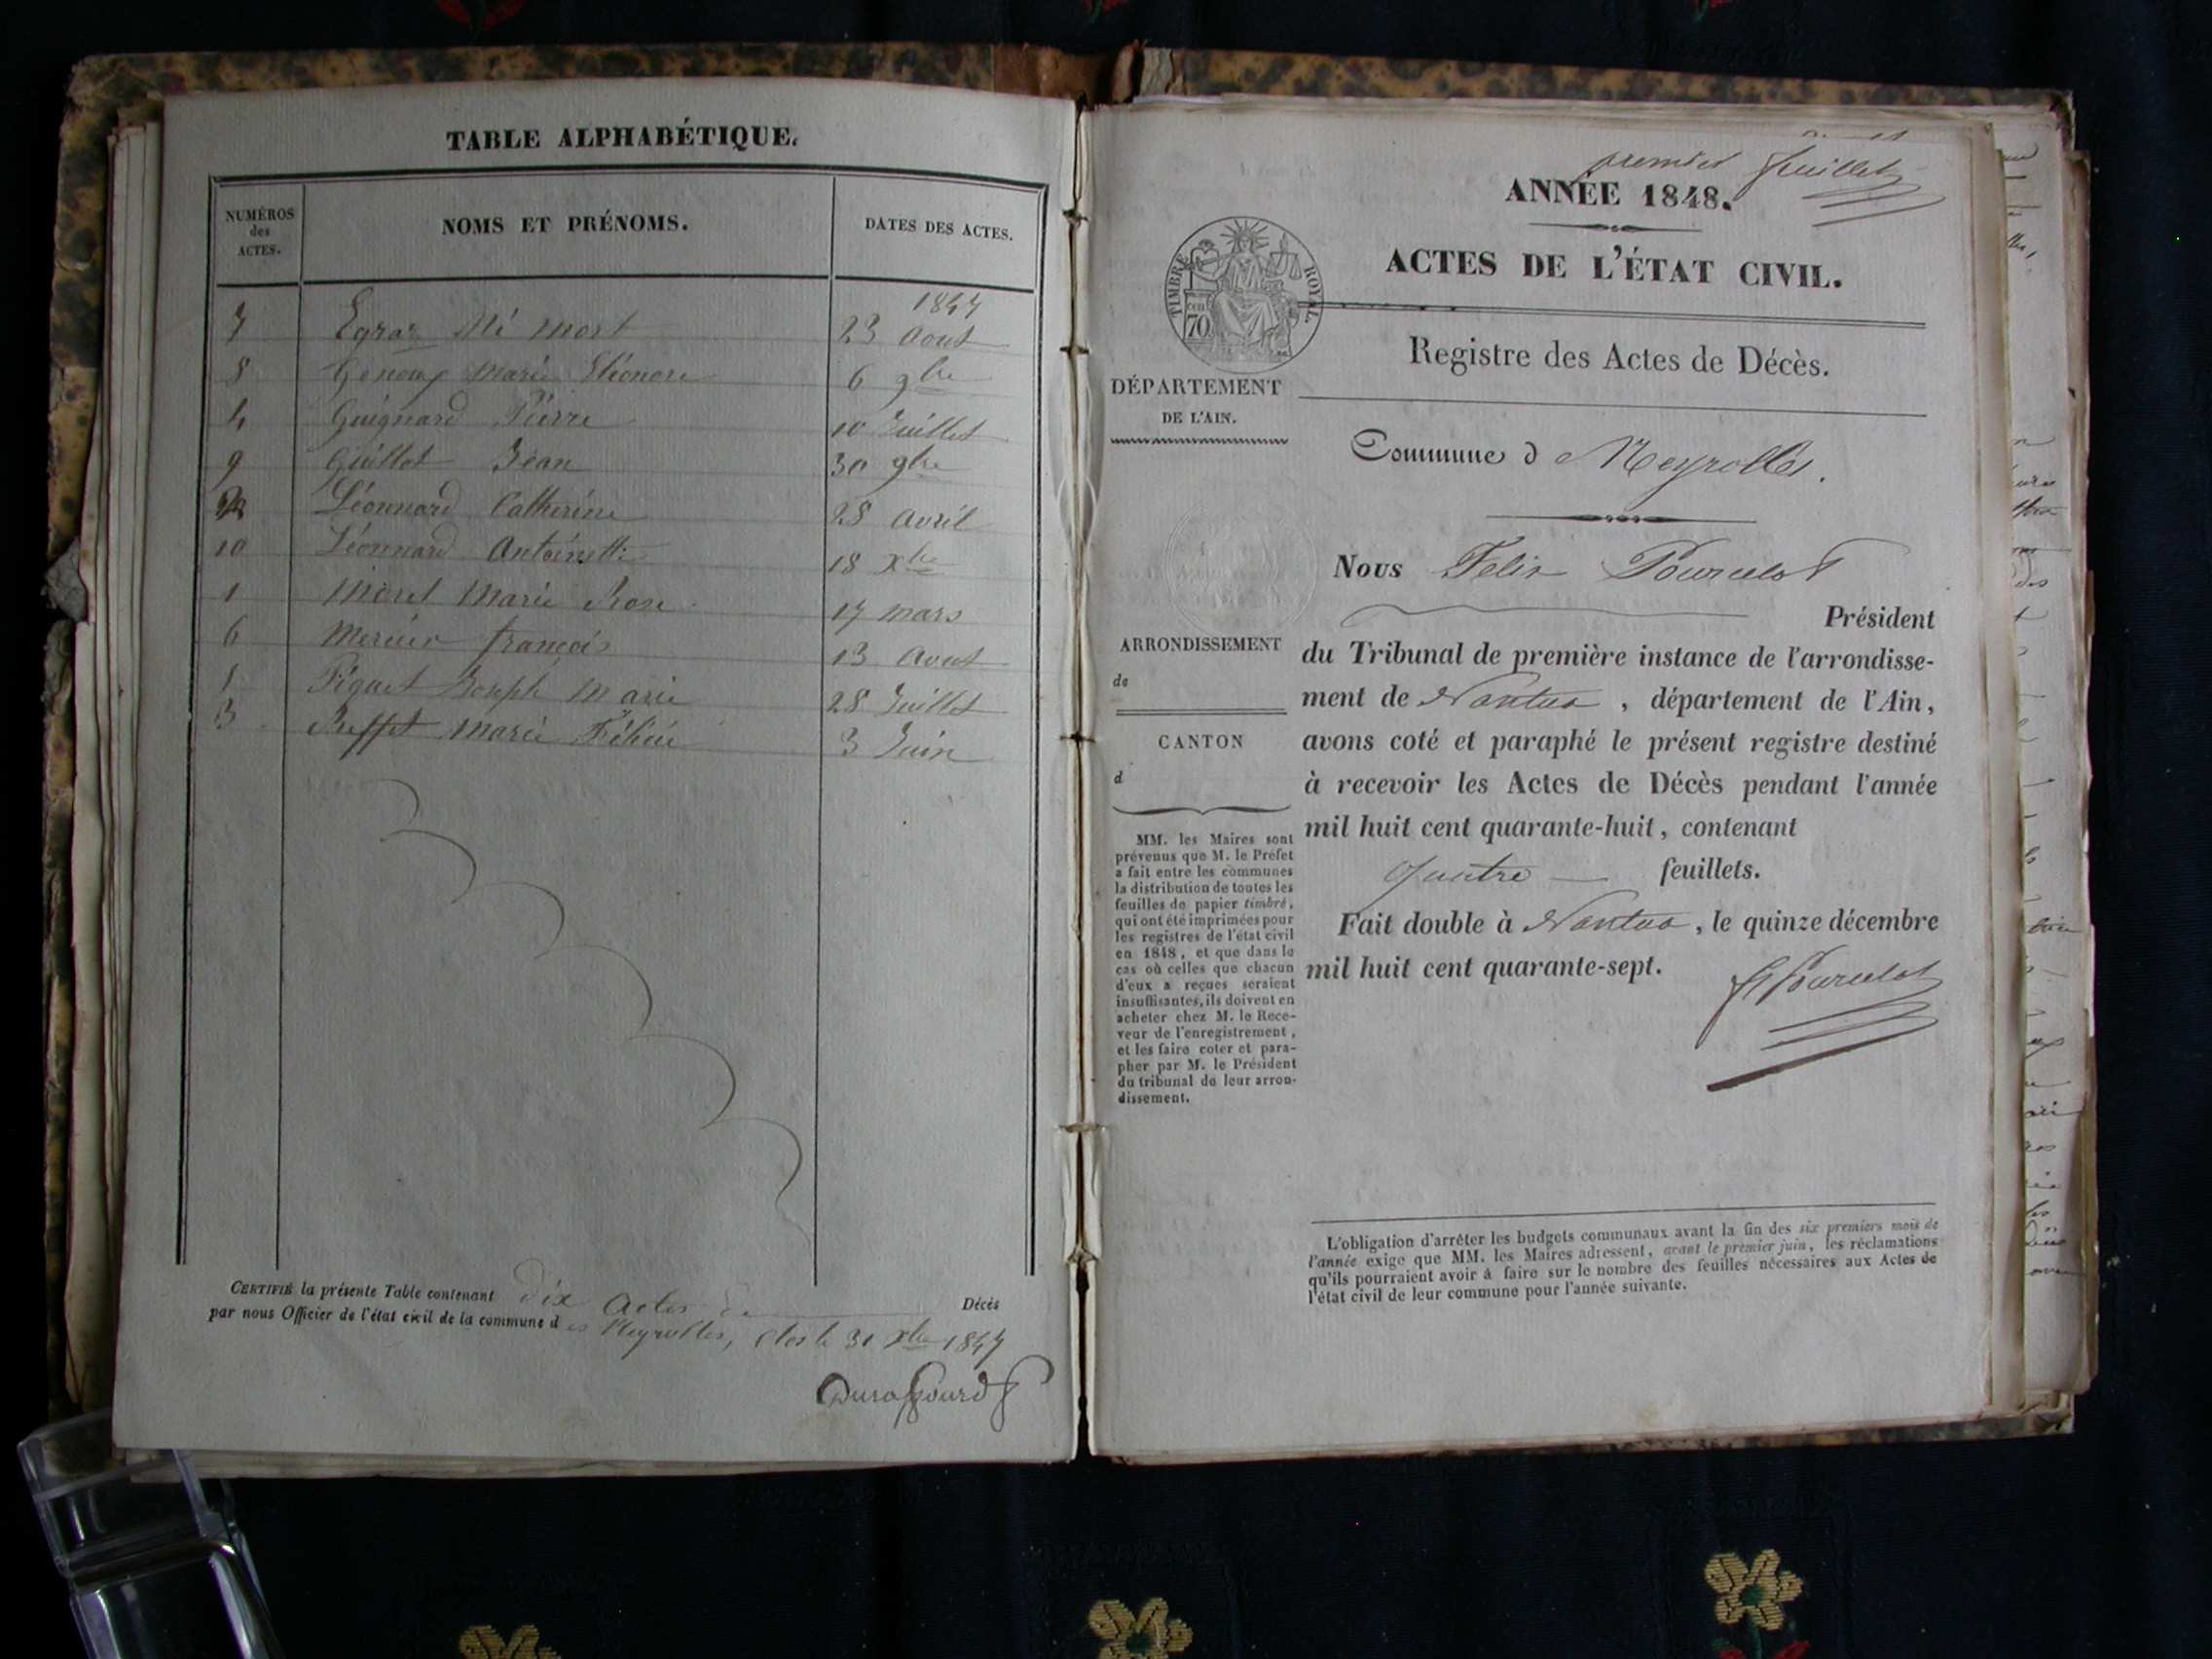 TABLE ALPHABÉTIQUE.
NUMÉROS des ACTES. NOMS ET PRÉNOMS. DATES DES ACTES.
1847
7 Egraz Né mort 23 Aout
8 Genoux Marie Eléonore 6 9bre
4 Guignard Pierre 10 Juillet
9 Guillot Jean 30 9bre
2 Léonnard Catherine 28 Avril
10 Léonnard Antoinette 18 Xbre
1 Morel Marie Rose 17 Mars
6 Mercier françois 13 Aout
5 Piquet Joseph Marie 28 Juillet
3 Marie Félicie 3 Juin
CERTIFIÉ la présente Table contenant dix Actes de Décès
par nous Officier de l'état civil de la commune d es Neyrolles, Clos le 31 Xbre 1847
Durafourd
premier feuillet
ANNÉE 1848.
ACTES DE L'ÉTAT CIVIL.
TIMBRE ROYAL
70
Registre des Actes de Décès.
DÉPARTEMENT
DE L'AIN.
Commune d es Neyrolles.
Nous Felix Pourcelot
Président
ARRONDISSEMENT
de
CANTON
d
du Tribunal de première instance de l'arrondisse-
ment de Nantua, département de l'Ain,
avons coté et paraphé le présent registre destiné
à recevoir les Actes de Décès pendant l'année
mil huit cent quarante-huit, contenant
quatre feuillets.
Fait double à Nantua, le quinze décembre
mil huit cent quarante-sept.
F Pourcelot
MM. les Maires sont
prévenus que M. le Préfet
a fait entre les communes
la distribution de toutes les
feuilles de papier timbré,
qui ont été imprimées pour
les registres de l'état civil
en 1848, et que dans le
cas où celles que chacun
d'eux a reçues seraient
insuffisantes, ils doivent en
acheter chez M. le Rece-
veur de l'enregistrement,
et les faire coter et para-
pher par M. le Président
du tribunal de leur arron-
dissement.
L'obligation d'arrêter les budgets communaux avant la fin des six premiers mois de
l'année exige que MM. les Maires adressent, avant le premier juin, les réclamations
qu'ils pourraient avoir à faire sur le nombre des feuilles nécessaires aux Actes de
l'état civil de leur commune pour l'année suivante.